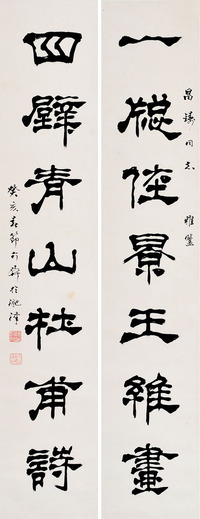 一牕佳景王維畫
同志 雅鑒
四壁青山杜甫詩
癸亥春節